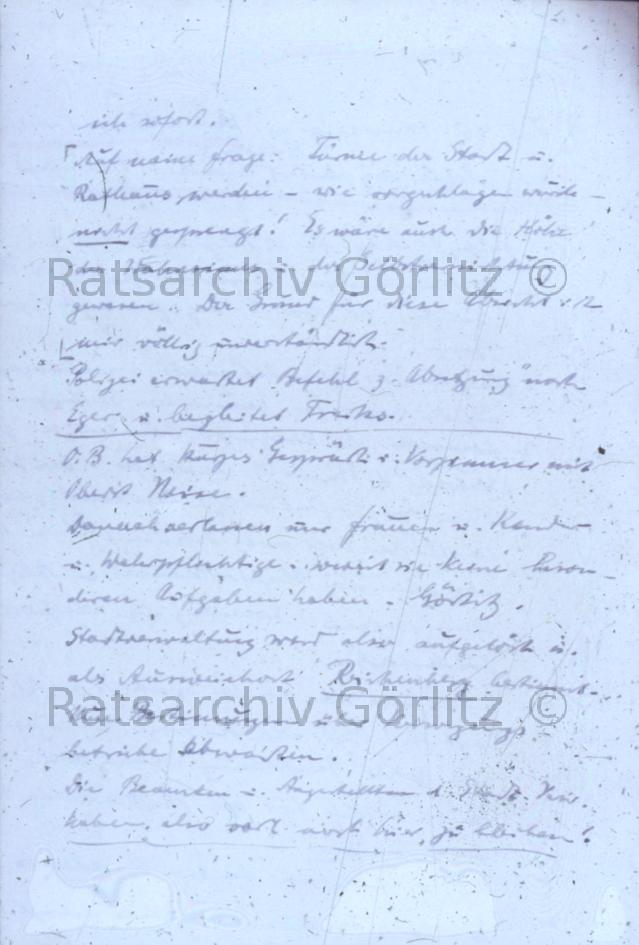 ich sofort.
Auf meine Frage: Türme der Stadt u.
Rathaus werden – wie vorgeschlagen wurde –
nicht gesprengt! Es wäre auch die Höhe
des Wahnsinns u. der Selbstvernichtung
Ratsarchiv Görlitz ©
gewesen. Der Grund für diese Absicht ist
mir völlig unverständlich.
Polizei erwartet Befehl z. "Absetzung" nach
Eger u. begleitet Trecks.
O.B. hat kurzes Gespräch i. Vorzimmer mit
Oberst Neise.
Danach verlassen nur Frauen u. Kinder
u. Wehrpflichtige, soweit sie keine
deren Aufgaben haben – Görlitz.
Stadtverwaltung wird also aufgelöst u.
als Ausweichort Reichenberg bestimmt.
Ratsarchiv Görlitz ©
betriebe abwarten.
Die Beamten u. Angestellten d. Stadt
haben also vorl. noch hier zu bleiben!